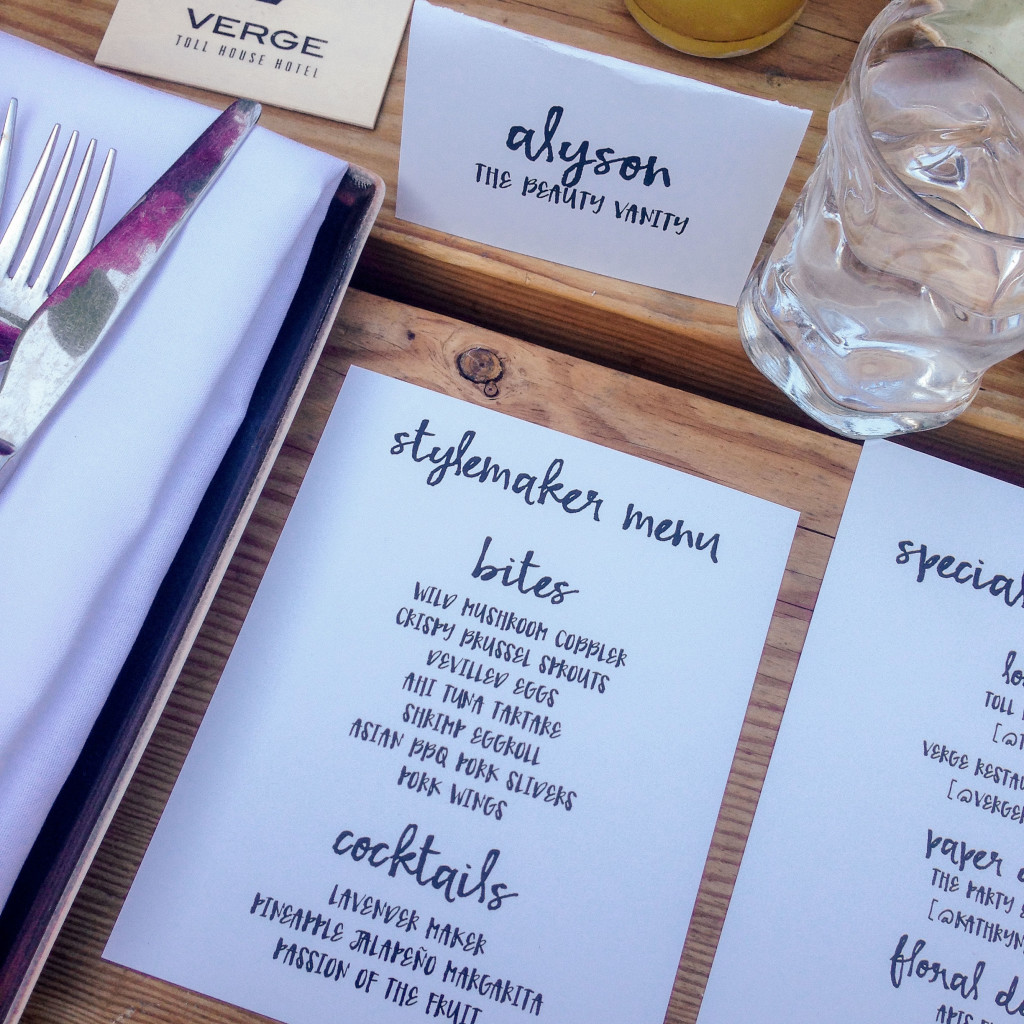 VERGE
TOLL HOUSE HOTEL
alyson
THE BEAUTY VANITY
stylemaker menu
bites
WILD MUSHROOM COBBLER
CRISPY BRUSSEL SPROUTS
DEVILLED EGGS
AHI TUNA TARTARE
SHRIMP EGGROLL
ASIAN BBQ PORK SLIDERS
PORK WINGS
cocktails
LAVENDER MAKER
PINEAPPLE JALAPEÑO MARGARITA
PASSION OF THE FRUIT
special
TOLL
VERGE RESTAU
[@VERGER
paper
THE PARTY
[@KATHRYN
floral de
APIS